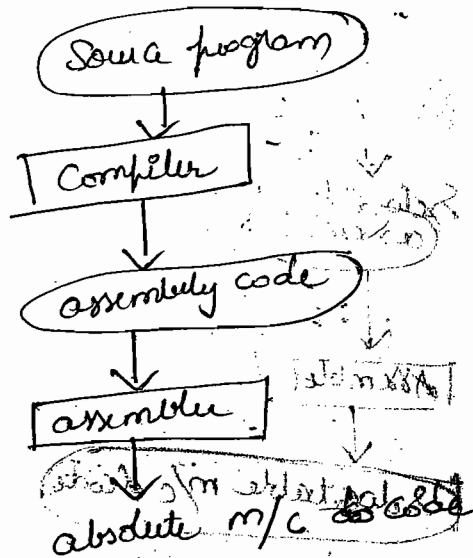 Source program
Compiler
assembly code
assembler
absolute m/c code